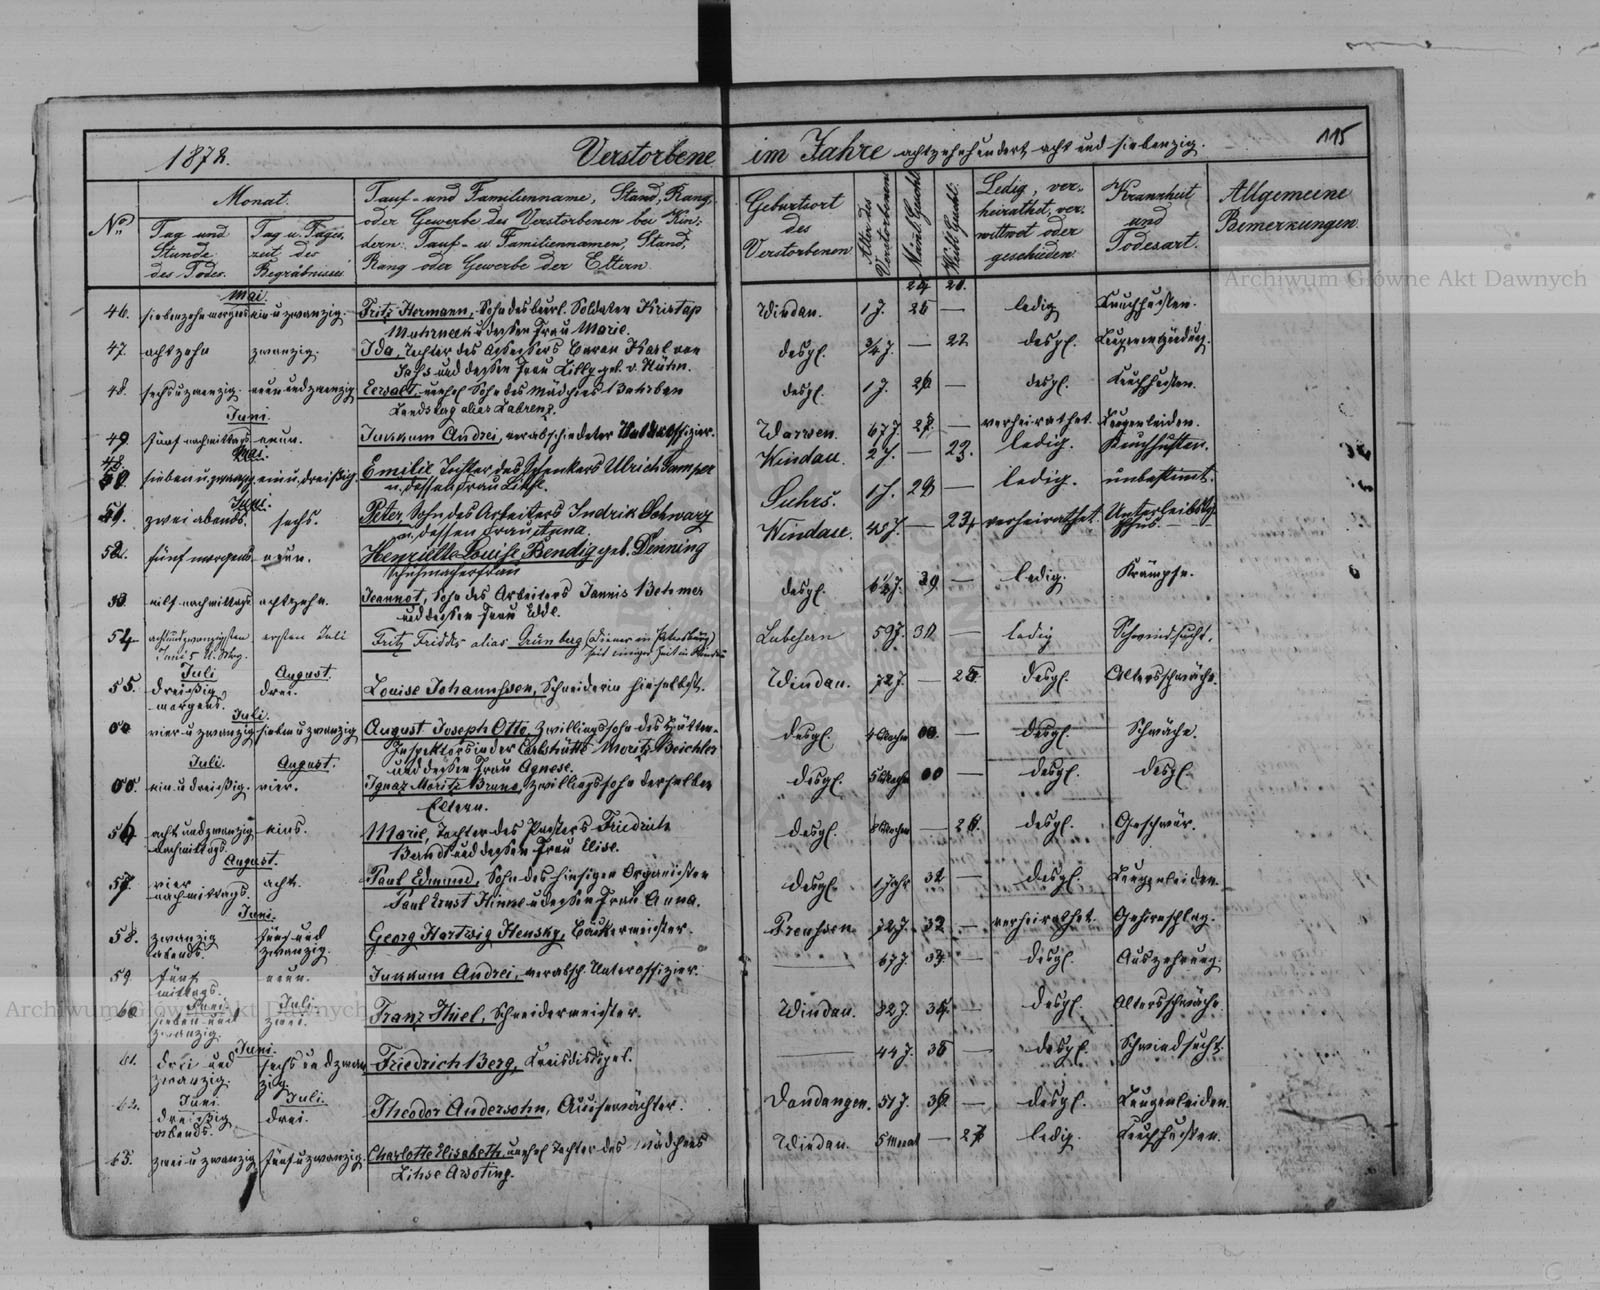 1878.
Verstorbene im Jahre achtzehnhundert acht und siebenzig.
115
No.
Monat.
Tag und Stunde des Todes.
Tag u. Tages zeit des Begräbnisses
Tauf- und Familienname, Stand, Rang
oder Gewerbe des Verstorbenen bei Kin-
dern: Tauf- u Familiennamen, Stand,
Rang oder Gewerbe der Eltern.
Geburtsort des Verstorbenen
Alter des Verstorbenen
Männl. Geschl.
Weibl. Geschl.
Ledig, ver-
heirathet, ver-
wittwet oder
geschieden.
Krankheit und Todesart.
Allgemeine Bemerkungen.
Mai.
46. siebenzehn morgens ein u zwanzig. Fritz Hermann, Sohn des beurl. Soldaten Kristap Windau. 1 J. 25 — ledig Keuchhusten.
u dessen Frau Marie.
47. achtzehn zwanzig. Ida, Tochter des Assessors Baron Karl von desgl. 3/4 J. — 22 desgl. Lungenentzündung.
Sass und dessen Frau Lilly geb. v.
48. sechs u zwanzig. neun und zwanzig unehel Sohn des Mädchens desgl. 1 J. 26 — desgl. Keuchhusten.
alias Labrenz.
Juni.
49. fünf nachmittags neun. Jukkum Andrei, verabschiedeter Unteroffizier. Warwen. 67 J. 27. — verheirathet. Lungenleiden.
Mai.
50. sieben u zwanzig ein u. dreißig. Emilie Tochter des Schenkers Ulrich Windau. 2 J. — 23. ledig. Keuchhusten.
u. dessen Frau Lihse.
Juni.
51. zwei abends. sechs. Peter, Sohn des Arbeiters Indrik Schwarz Suhrs. 1 J. 28 — ledig. unbestimmt.
u. dessen Frau Anna.
52. fünf morgens neun. Henriette Louise Bendig geb. Denning Windau. 45 J. — 24 verheirathet. Unterleibsty-
phus.
Schuhmacherfrau
53. elf nachmittags achtzehn. Jeannot, Sohn des Arbeiters Jannis Behmer desgl. 6 1/2 J. 29 — ledig. Krämpfe.
und dessen Frau Edde.
54 achtundzwanzigsten ersten Juli Fritz Friddis alias Grünberg (Diener in Petersburg) 59 J. 30 — ledig Schwindsucht.
Juni 5 U. Mrg. seit einiger Zeit in Windau
Juli August.
55. dreißig morgens. drei. Louise Johannssen, Schneiderin hieselbst. Windau. 72 J. — 25. desgl. Altersschwäche.
Juli.
00 vier u zwanzig sieben u zwanzig August Joseph Otto Zwillingssohn des Hütten- desgl. 4 Wochen 00. — desgl. Schwäche.
Inspektors in der Carlshütte Moritz Beichler
und dessen Frau Agnese.
Juli. August.
00. ein u dreißig. vier. Ignaz Moritz Bruno, Zwillingssohn derselben desgl. 5 Wochen 00 — desgl. desgl.
Eltern.
56 acht und zwanzig nachmittags. eins. Marie, Tochter des Friedrich desgl. 8 Wochen — 26. desgl. Geschwür.
Berndt und dessen Frau Elise.
August.
57. vier nachmittags. acht. Paul Edmund, Sohn des hiesigen Organisten desgl. 1 Jahr 31 — desgl. Lungenleiden.
Paul Ernst u dessen Frau Anna.
Juni.
58. zwanzig abends. fünf und zwanzig. Georg Hartwig Hensky, Bäckermeister. Preussen 72 J. 32 — verheirathet. Gehirnschlag.
59. fünf mittags. neun. Jukkum Andrei, verabsch. Unteroffizier. — 67 J. 33. — desgl Auszehrung.
Juni Juli
60 sieben und zwanzig. zwei. Franz Thiel, Schneidermeister. Windau. 82 J. 34. — desgl. Altersschwäche
Juni.
61. drei und zwanzig. sechs und zwan zig. Friedrich Berg, — 44 J. 35 — desgl. Schwindsucht.
Juni. Juli.
62. dreißig abends. drei. Theodor Andersohn, Dondangen. 51 J. 36. — desgl. Lungenleiden.
63. zwei u zwanzig fünf u zwanzig. Charlotte Elisabeth unehel Tochter des Mädchens Windau. 5 Monat — 27 ledig. Keuchhusten.
Lihse Awoting.
Archiwum Główne Akt Dawnych
Archiwum Główne Akt Dawnych